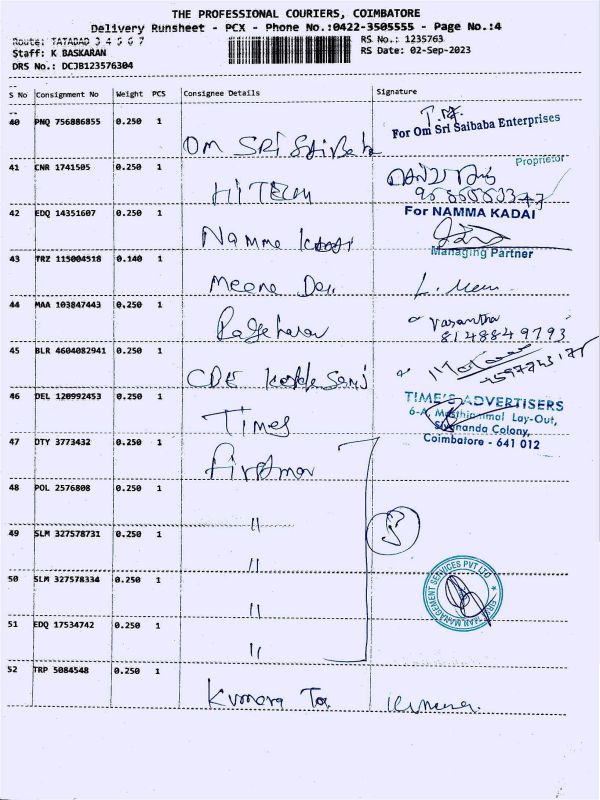 THE PROFESSIONAL COURIERS, COIMBATORE
Delivery Runsheet - PCX - Phone No.:0422-3505555 - Page No.:4
Route: TATABAD 3 4 5 6 7
RS No.: 1235763
Staff: K BASKARAN
RS Date: 02-Sep-2023
DRS No.: DCJB123576304
S No Consignment No Weight PCS Consignee Details Signature
40 PNQ 756886855 0.250 1 OM SRI Saibaba
For Om Sri Saibaba Enterprises
Proprietor
41 CNR 1741505 0.250 1 HITECH
42 EDQ 14351607 0.250 1 Namma Kadai
For NAMMA KADAI
Managing Partner
43 TRZ 115004518 0.140 1 Meena L. Meen
44 MAA 103847443 0.250 1
Vasantha
8148849793
45 BLR 4604082941 0.250 1 CDE
46 DEL 120992453 0.250 1 Times
TIME'S ADVERTISERS
6-A, Lay-Out,
Colony,
Coimbatore - 641 012
47 DTY 3773432 0.250 1 Firstman
48 POL 2576808 0.250 1 "
49 SLM 327578731 0.250 1 "
50 SLM 327578334 0.250 1 "
MANAGEMENT SERVICES PVT LTD
51 EDQ 17534742 0.250 1 "
52 TRP 5084548 0.250 1 Kumara